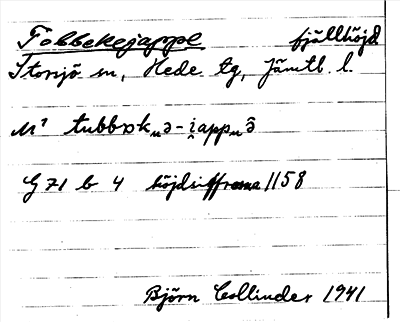 Tobbekejappe fjällhöjd
Storsjö sn, Hede tg, Jämtl. l.
M¹ tubbɒkᵤə-i̯appᵤə̂
G 71 b 4 höjdsiffrorna 1158
Björn Collinder 1941